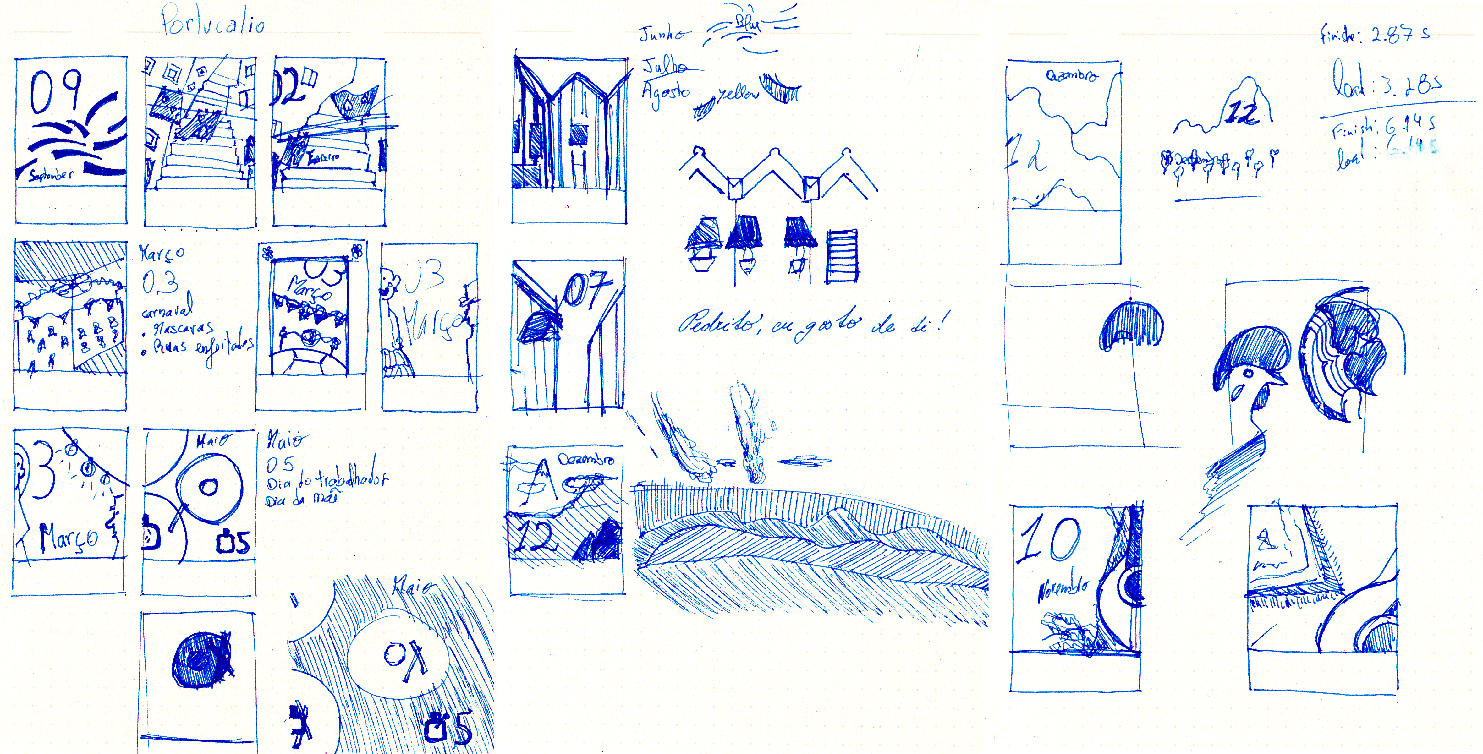 Portucalio
09
September
02
Março
03
carnaval
• Mascaras
• Ruas enfeitadas
Março
03
Março
3
Março
Maio
05
Maio
05
Dia do trabalhador
Dia da mãe
Maio
05
Junho
Blue
Julho
Agosto
yellow
07
Pedrito, eu gosto de ti!
Dezembro
12
Finish: 2.87 s
load: 3.28s
Finish: 6.14 s
load: 6.14 s
Dezembro
12
12
10
Novembro